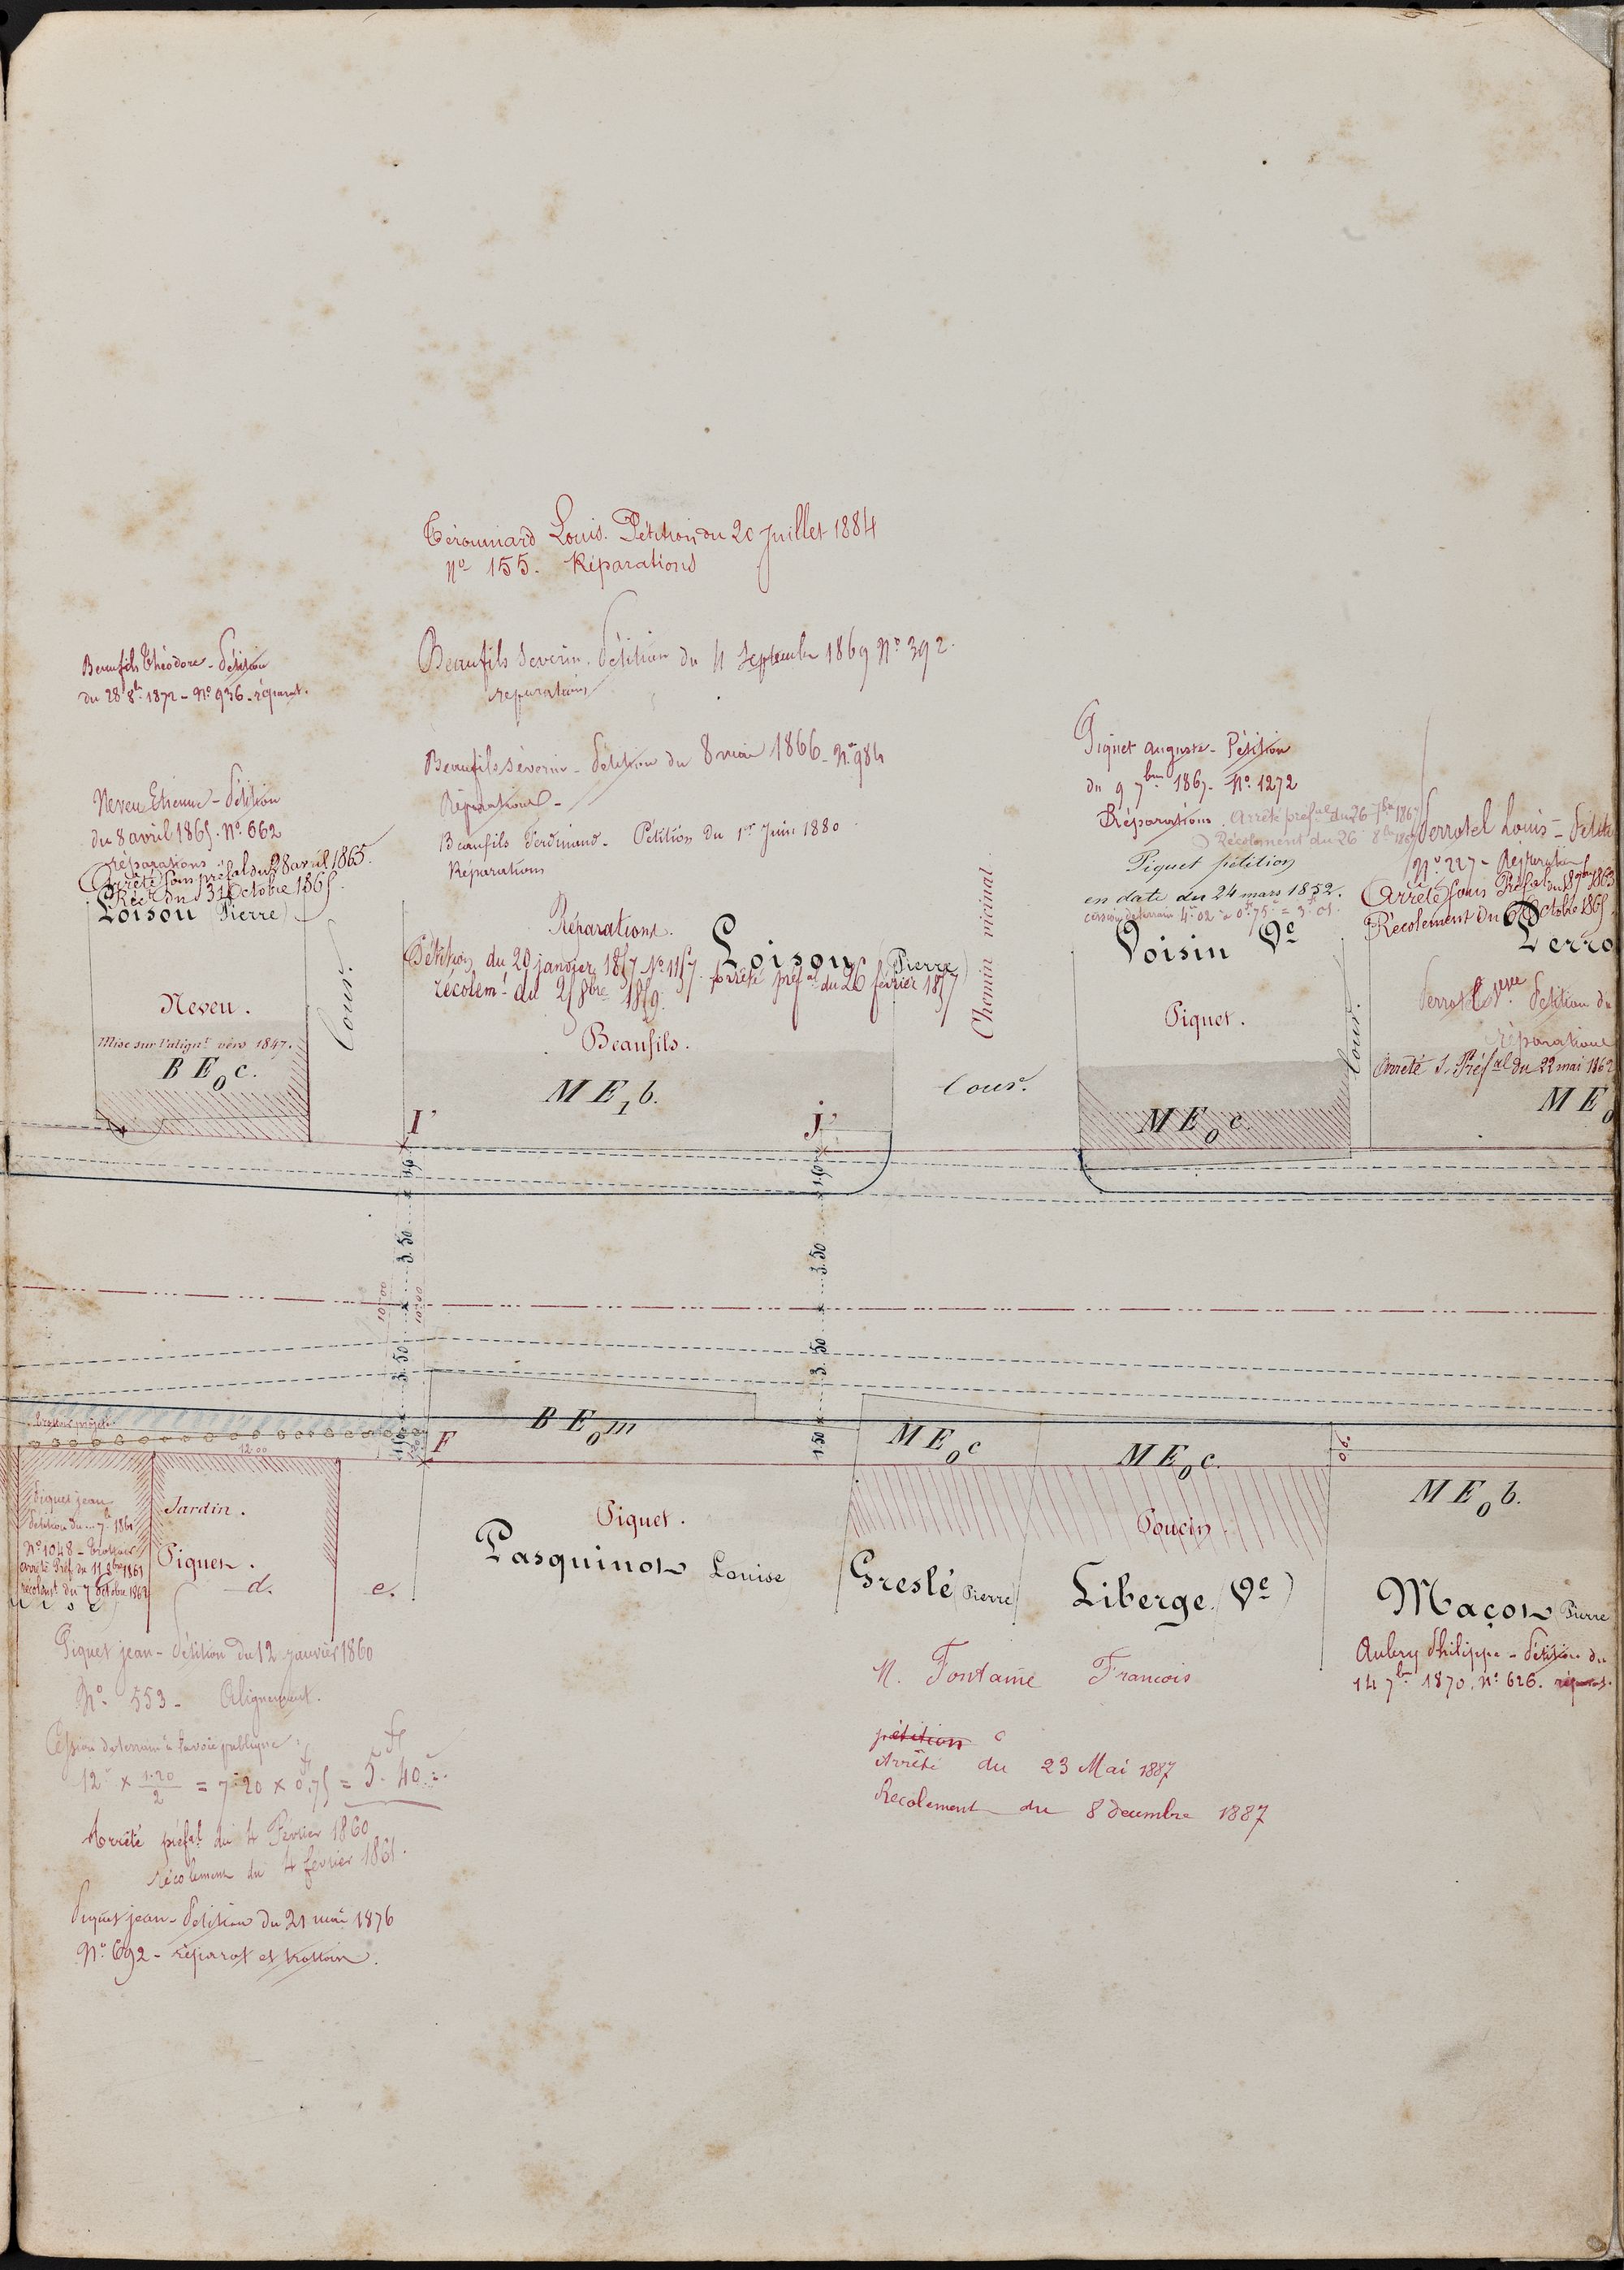 Louis. Pétition du 20 Juillet 1884
N° 155. Réparations
Beaufils Théodore - Pétition
du 28 8bre 1872 - N° 936 - réparat.
Beaufils Severin. Pétition du 4 Septembre 1869 N° 392.
reparations
Neveu Etienne - Pétition
du 8 avril 1865. N° 662
réparations
Arrêté sous préfal du 28 avril 1865.
Rect du 31 Octobre 1865.
Loison (Pierre)
Neveu.
Mise sur l'alignt vers 1847.
B E0 c.
Cour.
Beaufils Séverin - Pétition du 8 mai 1866 - N° 984
Réparations -
Beaufils Ferdinand - Pétition du 1er Juin 1880
Réparations
Réparations.
Loison (Pierre)
Pétition du 20 janvier 1857 N° 1157. Arrêté préfal du 26 février 1857
récolemt du 25 8bre 1859.
Beaufils.
M E1 b.
I'
J'
Chemin vicinal
Cour.
Piquet Auguste - Pétition
du 9 7bre 1867. N° 1272
Réparations. Arrêté préfal du 26 7bre 1867
Récolement du 26 8bre 1867
Piquet pétition
en date du 24 mars 1852.
cession de terrain 4m 02 à 0f 75c = 3f 01.
Voisin Ve
Piquet.
M E0 c.
Cour.
Perrotel Louis - Pétit
N° 227 - Réparation
Arrêté sous Préfal du 18 1863
Récolement du 6 Octobre 1865
Perro
Perrotel veuve Pétition du
réparations
Arrêté S. Préfal du 22 mai 1862
M E0
1.50
3.50
10.00
10.00
3.50
1.50
1.50
3.50
3.50
1.50
Trottoir projeté
12.00
F
B E0 m
M E0 c
M E0 c.
0.90
M E0 b.
Piquet jean
Pétition du 7bre 1861
N° 1048 - Trottoir
Arrêté Préf. du 11 8bre 1861
récolement du 7 Octobre 1862
Jardin.
Piquet.
d.
e.
Piquet.
Pasquinot Louise
Greslé (Pierre)
Poucin.
Liberge (Ve)
Maçon (Pierre
Piquet jean - Pétition du 12 janvier 1860
N° 553 - Alignement.
Cession de terrain à la voie publique :
12m × 1.20/2 = 7m 20 × 0f,75 = 5f. 40c
Arrêté préfal du 4 Février 1860
récolement du 4 février 1861.
Piquet jean - Pétition du 21 mai 1876
N° 692 - réparat et trottoir.
M. Fontaine Francois
pétition
Arrêté du 23 Mai 1887
Recolement du 8 decembre 1887
Aubry Philippe - Pétition du
14 7bre 1870. N° 626. réparat.